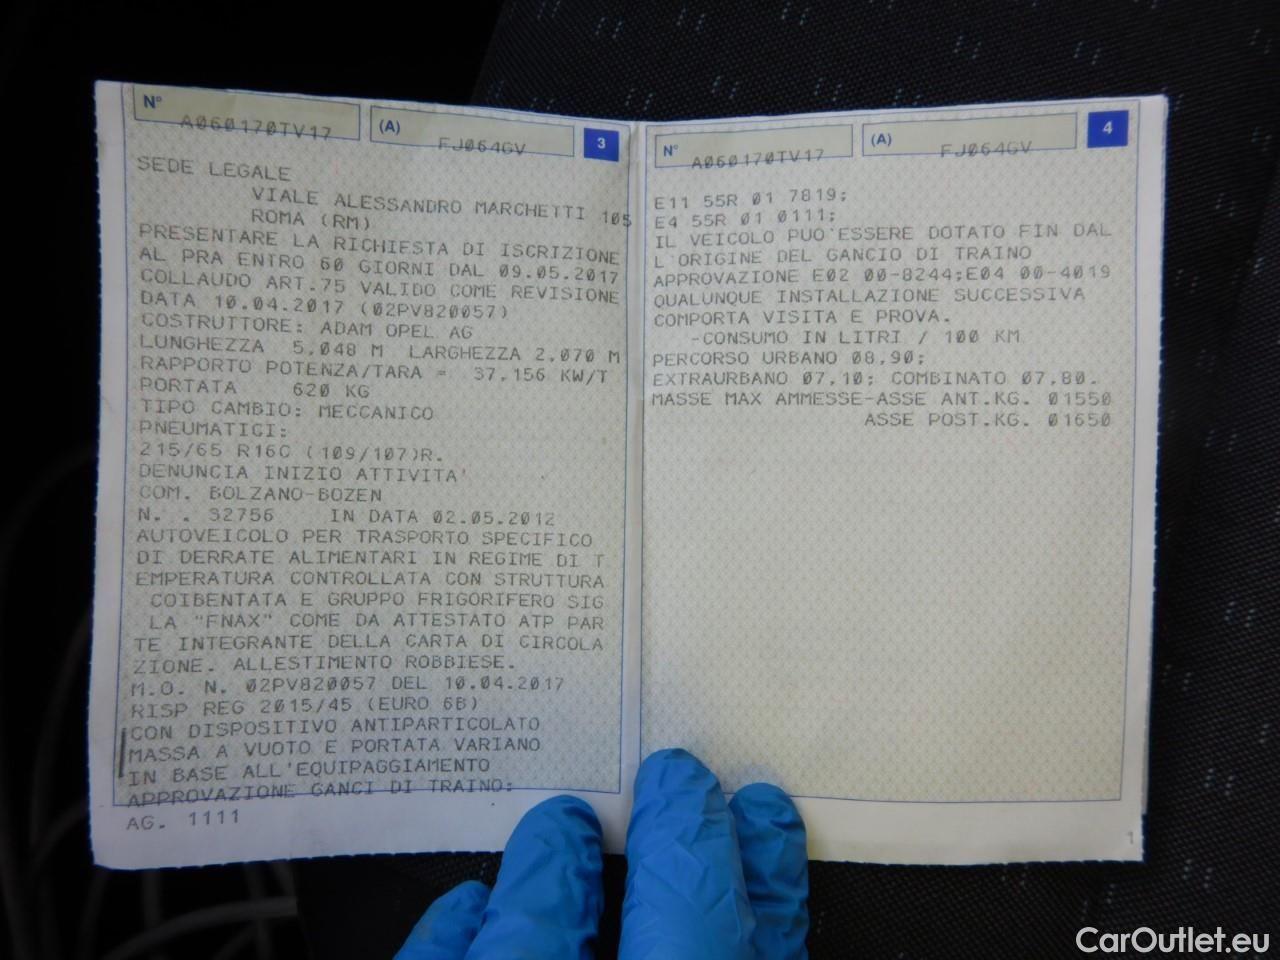 N° A060170TV17 (A) FJ064GV 3
SEDE LEGALE
VIALE ALESSANDRO MARCHETTI 105
ROMA (RM)
PRESENTARE LA RICHIESTA DI ISCRIZIONE
AL PRA ENTRO 60 GIORNI DAL 09.05.2017
COLLAUDO ART.75 VALIDO COME REVISIONE
DATA 10.04.2017 (02PV820057)
COSTRUTTORE: ADAM OPEL AG
LUNGHEZZA 5,048 M LARGHEZZA 2,070 M
RAPPORTO POTENZA/TARA = 37,156 KW/T
PORTATA 620 KG
TIPO CAMBIO: MECCANICO
PNEUMATICI:
215/65 R16C (109/107)R.
DENUNCIA INIZIO ATTIVITA'
COM. BOLZANO-BOZEN
N. . 32756 IN DATA 02.05.2012
AUTOVEICOLO PER TRASPORTO SPECIFICO
DI DERRATE ALIMENTARI IN REGIME DI T
EMPERATURA CONTROLLATA CON STRUTTURA
COIBENTATA E GRUPPO FRIGORIFERO SIG
LA "FNAX" COME DA ATTESTATO ATP PAR
TE INTEGRANTE DELLA CARTA DI CIRCOLA
ZIONE. ALLESTIMENTO ROBBIESE.
M.O. N. 02PV820057 DEL 10.04.2017
RISP REG 2015/45 (EURO 6B)
CON DISPOSITIVO ANTIPARTICOLATO
MASSA A VUOTO E PORTATA VARIANO
IN BASE ALL'EQUIPAGGIAMENTO
APPROVAZIONE GANCI DI TRAINO:
AG. 1111
N° A060170TV17 (A) FJ064GV 4
E11 55R 01 7819;
E4 55R 01 0111;
IL VEICOLO PUO'ESSERE DOTATO FIN DAL
L'ORIGINE DEL GANCIO DI TRAINO
APPROVAZIONE E02 00-8244;E04 00-4019
QUALUNQUE INSTALLAZIONE SUCCESSIVA
COMPORTA VISITA E PROVA.
-CONSUMO IN LITRI / 100 KM
PERCORSO URBANO 08,90;
EXTRAURBANO 07,10; COMBINATO 07,80.
MASSE MAX AMMESSE-ASSE ANT.KG. 01550
ASSE POST.KG. 01650
1
CarOutlet.eu